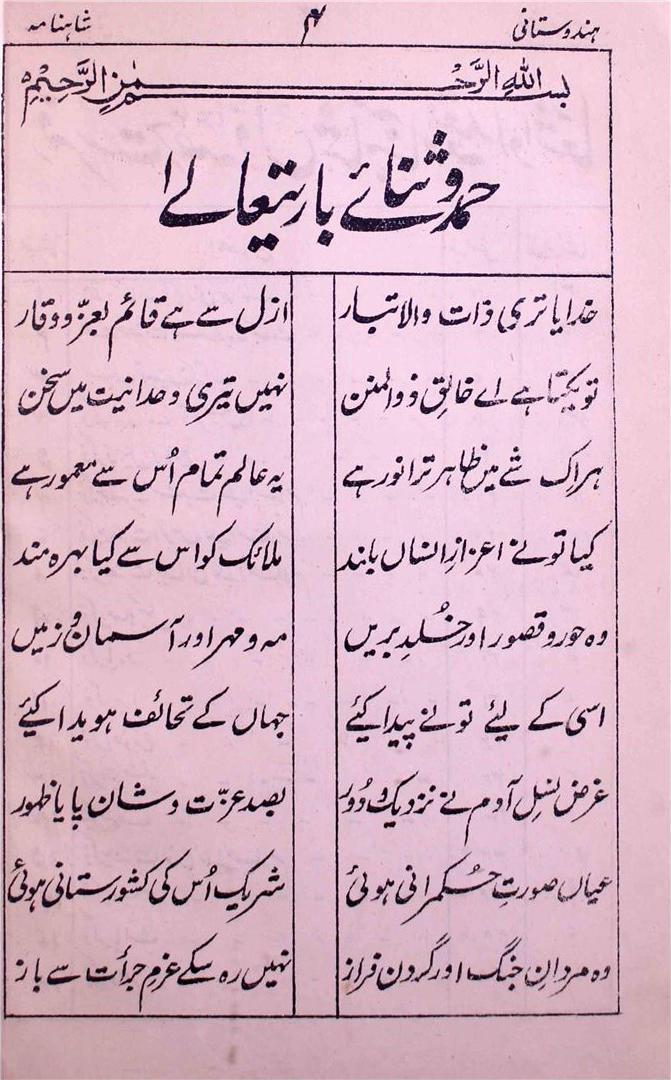 ہندوستانی ۴ شاہنامہ
بسم اللہ الرحمٰن الرحیم
حمد و ثنائے باریتعالےٰ
خدایا تری ذات والا تبار ازل سے ہے قائم بعزّ و وقار
تو یکتا ہے اے خالقِ ذوالمنن نہیں تیری وحدانیت میں سخن
ہر اِک شے میں ظاہر ترا نور ہے یہ عالم تمام اُس سے معمور ہے
کیا تو نے اعزازِ انساں بلند ملائک کو اس سے کیا بہرہ مند
وہ حور و قصور اور خُلدِ بریں مہ و مہر اور آسمان و زمیں
اسی کے لیئے تو نے پیدا کیئے جہاں کے تحائف ہویدا کیئے
غرض نسلِ آدم نے نزدیک و دُور بصد عزّت و شان پایا ظہور
عیاں صورتِ حُکمرانی ہوئی شریک اُس کی کشورستانی ہوئی
وہ مردانِ جنگ اور گردن فراز نہیں رہ سکے عزمِ جرأت سے باز